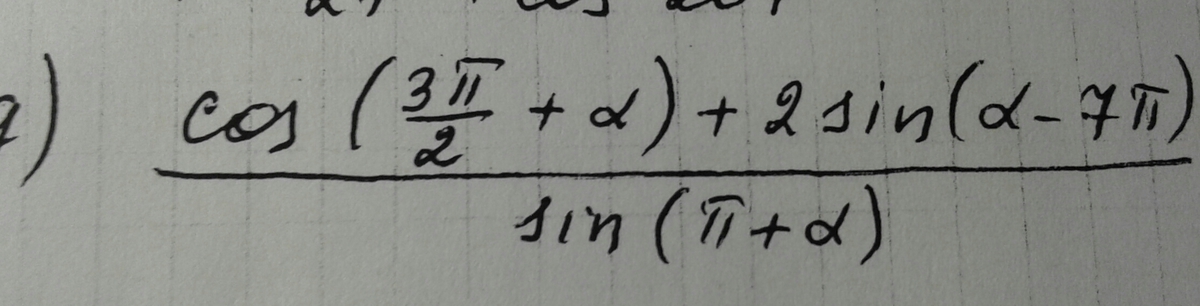 cos (3π/2 + α) + 2 sin(α - 7π)
sin (π + α)